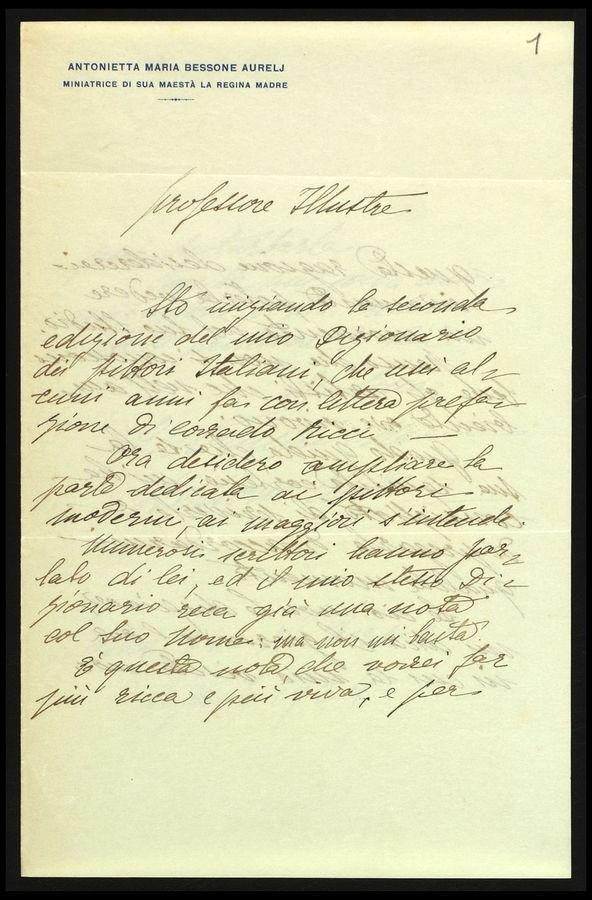 1
ANTONIETTA MARIA BESSONE AURELJ
MINIATRICE DI SUA MAESTÀ LA REGINA MADRE
Professore Illustre
Sto iniziando la seconda
edizione del mio Dizionario
dei Pittori Italiani, che uscì al-
cuni anni fa con lettera prefa-
zione di Corrado Ricci —
Ora desidero ampliare la
parte dedicata ai pittori
moderni, ai maggiori s'intende.
Numerosi scrittori hanno par-
lato di lei, ed il mio stesso Di-
zionario reca già una nota
col Suo Nome: ma non mi basta.
È questa nota, che vorrei far
più ricca e più viva, e per